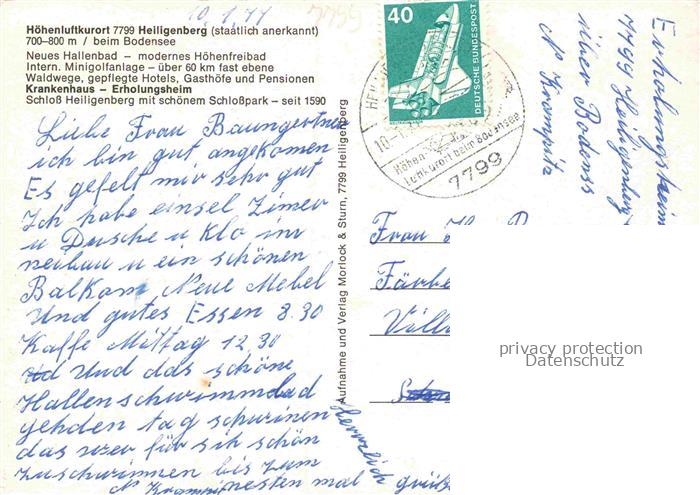 10.1.77
Höhenluftkurort 7799 Heiligenberg (staatlich anerkannt)
700–800 m / beim Bodensee
Neues Hallenbad – modernes Höhenfreibad
Intern. Minigolfanlage – über 60 km fast ebene
Waldwege, gepflegte Hotels, Gasthöfe und Pensionen
Krankenhaus – Erholungsheim
Schloß Heiligenberg mit schönem Schloßpark – seit 1590
Liebe Frau Baumgertner
ich bin gut angekomen
Es gefelt mir sehr gut
Ich habe einsel Zimer
u Dusche u Klo im
neubau u ein schönen
Balkom Neue Mebel
Und gutes Essen 8.30
Kaffe Mittag 12.30
Und das schöne
Hallenschwimmbad
gehden tag schwimen
das wzer für sich schön
zuschwimmen bis zum
nesten mal
Herrzlich grüß
N Krompitz
Aufnahme und Verlag Morlock & Sturn, 7799 Heiligenberg
40
DEUTSCHE BUNDESPOST
Höhen-
luftkurort beim Bodensee
7799
Erholungsheim
7799 Heiligenberg
über Bodens
N Krompitz
Frau
Färbe
Ville
privacy protection
Datenschutz